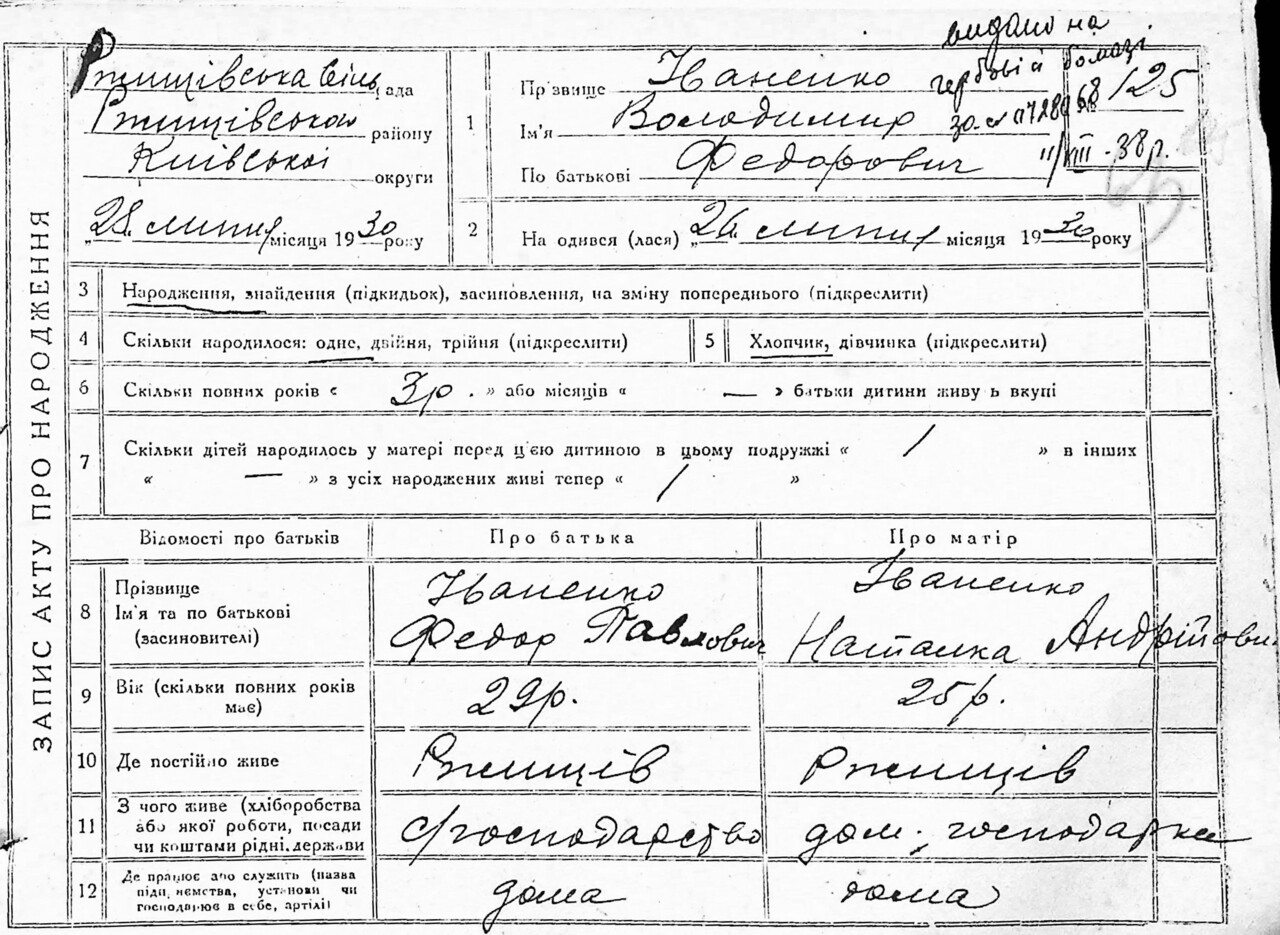 видано на
гербовій бомазі
за № 0728968
11/VIII-38р.
№ 125
Ржищівська сільрада
Ржищівська району
Київської округи
„28" липня місяця 1930 року
ЗАПИС АКТУ ПРО НАРОДЖЕННЯ
1 Прізвище Іваненко
Ім'я Володимир
По батькові Федорович
2 На одився (лася) „26" липня місяця 1930 року
3 Народження, знайдення (підкидьок), засиновлення, на зміну попереднього (підкреслити)
4 Скільки народилося: одне, двійня, трійня (підкреслити) 5 Хлопчик, дівчинка (підкреслити)
6 Скільки повних років « 3р. » або місяців « — » батьки дитини живу ь вкупі
7 Скільки дітей народилось у матері перед ц'єю дитиною в цьому подружжі « 1 » в інших
« — » з усіх народжених живі тепер « 1 »
Відомості про батьків Про батька Про матір
8 Прізвище Іваненко Іваненко
Ім'я та по батькові Федор Павлович Наталка Андрійовн
(засиновителі)
9 Вік (скільки повних років 29р. 25р.
має)
10 Де постійно живе Ржищів Ржищів
11 З чого живе (хліборобства
або якої роботи, посади с/господарство дом. господарка
чи коштами рідні, держави
12 Де працює або служить (назва
підп иємства, установи чи дома дома
господарює в себе, артілі)